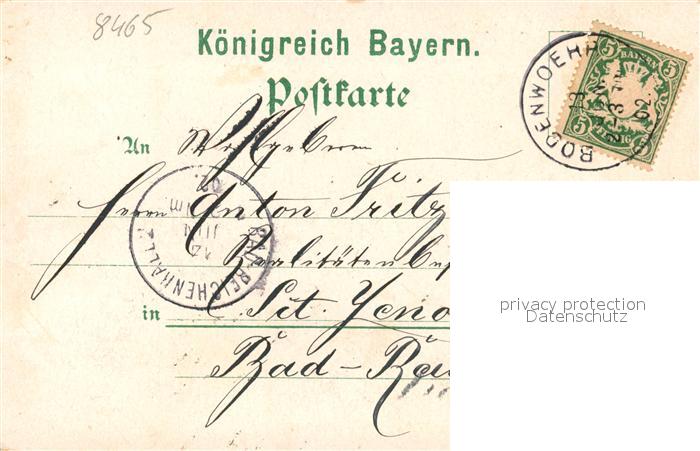 8465
Königreich Bayern.
Postkarte
BODENWOEHR
5 BAYERN 5
An Wohlgeboren
Herrn Anton Fritz
BAD REICHENHALL
12 JUN
02.
Realitätenbes
in St. Zeno
Bad-Rei
privacy protection
Datenschutz